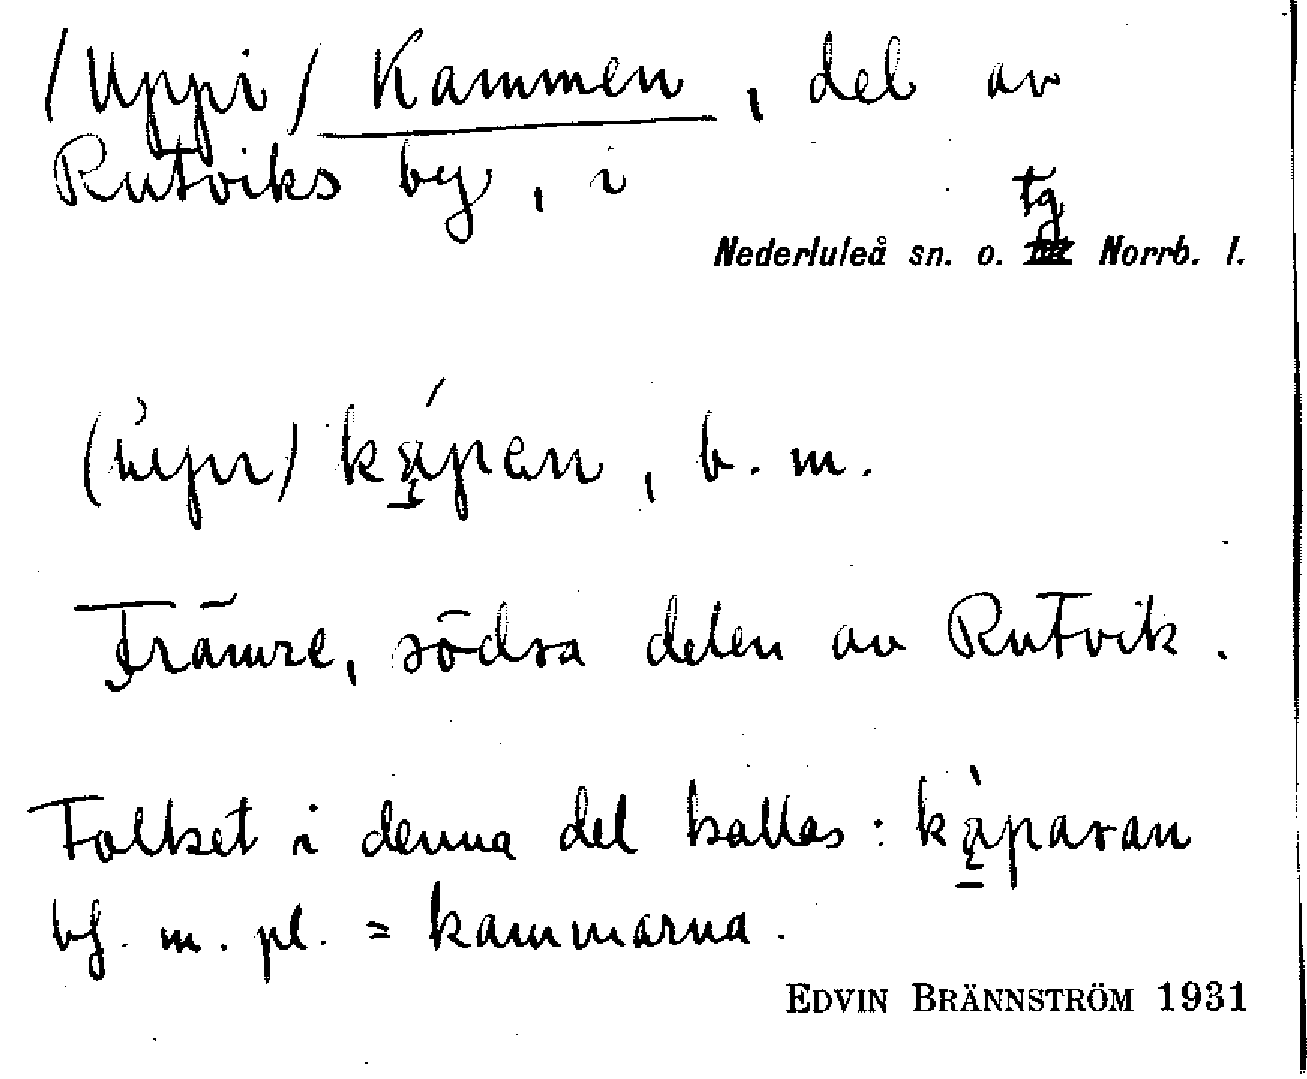 /Uppi/ Kammen, del av
Rutviks by, i
tg
Nederluleå sn. o. Norrb. l.
b. m.
Främre, södra delen av Rutvik.
Folket i denna del kallas:
bf. m. pl. = kammarna.
EDVIN BRÄNNSTRÖM 1931